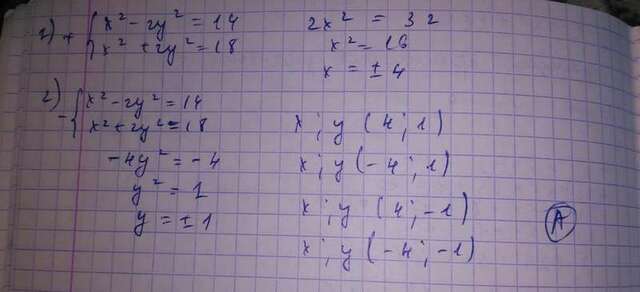 1) + { x² - 2y² = 14
x² + 2y² = 18
2x² = 32
x² = 16
x = ± 4
2) - { x² - 2y² = 14
x² + 2y² = 18
-4y² = -4
y² = 1
y = ± 1
x ; y (4 ; 1)
x ; y (-4 ; 1)
x ; y (4 ; -1)
x ; y (-4 ; -1)
A